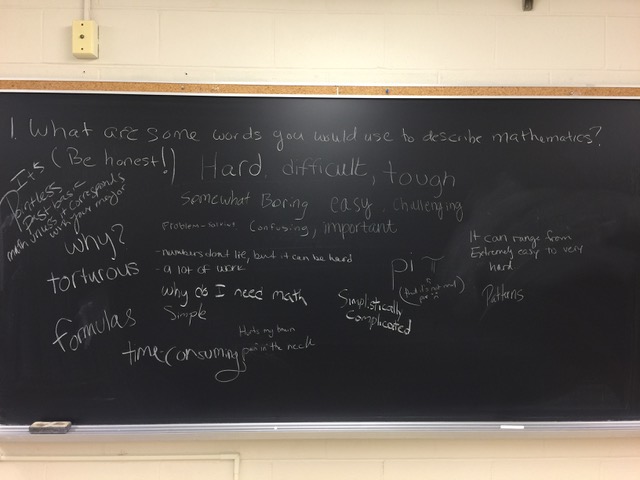 1. What are some words you would use to describe mathematics?
(Be honest!)
Hard, difficult, tough
It's
Pointless
Past basic
math unless it corresponds
with your major
Somewhat Boring easy, challenging
Problem-solving Confusing, important
why?
torturous
- numbers don't lie, but it can be hard
- a lot of work
Why do I need math
Simple
pi π
Simplistically
Complicated
It can range from
Extremely easy to very
hard
Patterns
formulas
time-consuming
Hurts my brain
pain in the neck